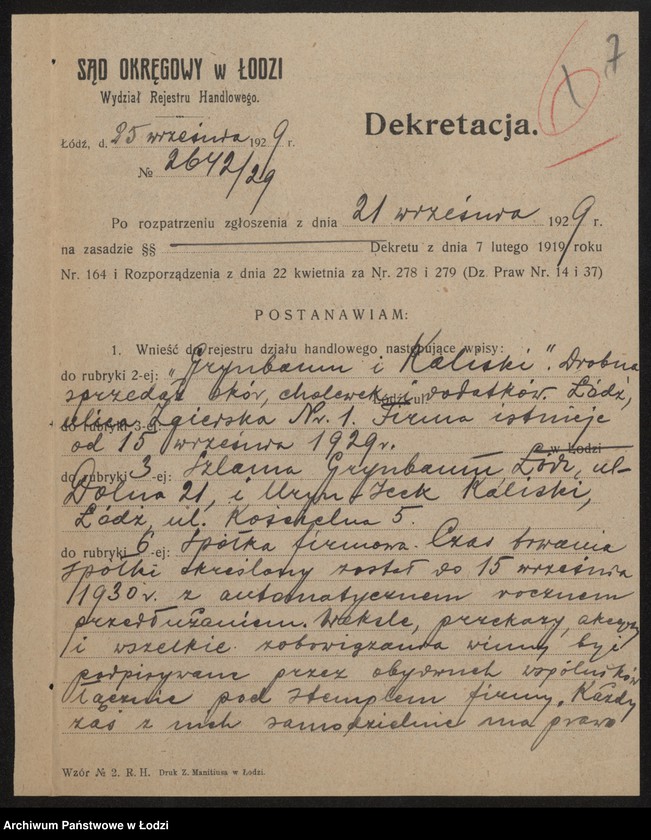 7
SĄD OKRĘGOWY w ŁODZI
Wydział Rejestru Handlowego.
Dekretacja.
Łódź, d. 25 września 1929 r.
№ 2642/29
Po rozpatrzeniu zgłoszenia z dnia 21 września 1929 r.
na zasadzie §§ Dekretu z dnia 7 lutego 1919 roku
Nr. 164 i Rozporządzenia z dnia 22 kwietnia za Nr. 278 i 279 (Dz. Praw Nr. 14 i 37)
POSTANAWIAM:
1. Wnieść do rejestru działu handlowego następujące wpisy:
do rubryki 2-ej: "Grynbaum i Kaliski". Drobna
sprzedaż skór, cholewek i dodatków. Łódź,
ulica Zgierska Nr. 1. Firma istnieje
od 15 września 1929 r.
do rubryki 3-ej: Szlama Grynbaum Łódź, ul.
Dolna 21, i Icek Kaliski,
Łódź, ul. Kościelna 5.
do rubryki 6-ej: Spółka firmowa. Czas trwania
spółki określony został do 15 września
1930 r. z automatycznem rocznem
przedłużaniem. Weksle, przekazy,
i wszelkie zobowiązania winny być
podpisywane przez obydwuch wspólników
łącznie pod stemplem firmy. Każdy
zaś z nich samodzielnie ma prawo
Wzór № 2. R. H. Druk Z. Manitiusa w Łodzi.
Archiwum Państwowe w Łodzi